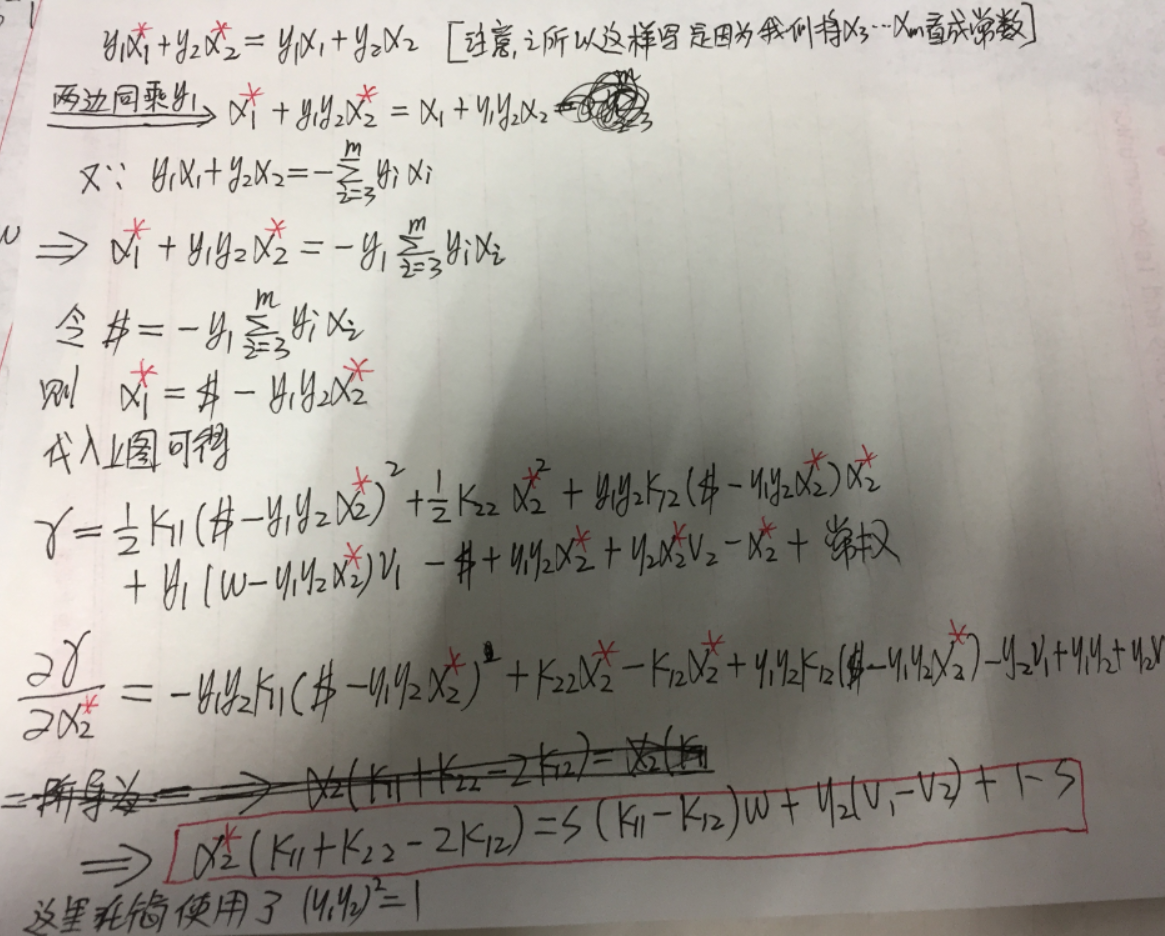 y₁α₁* + y₂α₂* = y₁α₁ + y₂α₂ [注意,之所以这样写是因为我们将α₃…αₘ看成常数]
两边同乘y₁ → α₁* + y₁y₂α₂* = α₁ + y₁y₂α₂
又∵ y₁α₁ + y₂α₂ = -∑ᵢ₌₃ᵐ yᵢαᵢ
⇒ α₁* + y₁y₂α₂* = -y₁ ∑ᵢ₌₃ᵐ yᵢαᵢ
令 $ = -y₁ ∑ᵢ₌₃ᵐ yᵢαᵢ
则 α₁* = $ - y₁y₂α₂*
代入上图可得
γ = ½K₁₁($ - y₁y₂α₂*)² + ½K₂₂α₂*² + y₁y₂K₁₂($ - y₁y₂α₂*)α₂*
+ y₁(w - y₁y₂α₂*)V₁ - $ + y₁y₂α₂* + y₂α₂*V₂ - α₂* + 常
∂γ/∂α₂* = -y₁y₂K₁₁($ - y₁y₂α₂*) + K₂₂α₂* - K₁₂α₂* + y₁y₂K₁₂($ - y₁y₂α₂*) - y₂V₁ + y₁y₂ + y₂V
⇒ α₂(K₁₁ + K₂₂ - 2K₁₂) = α₂(K₁₁
⇒ α₂*(K₁₁ + K₂₂ - 2K₁₂) = S(K₁₁ - K₁₂)w + y₂(V₁ - V₂) + 1 - S
这里 使用了 (y₁y₂)² = 1